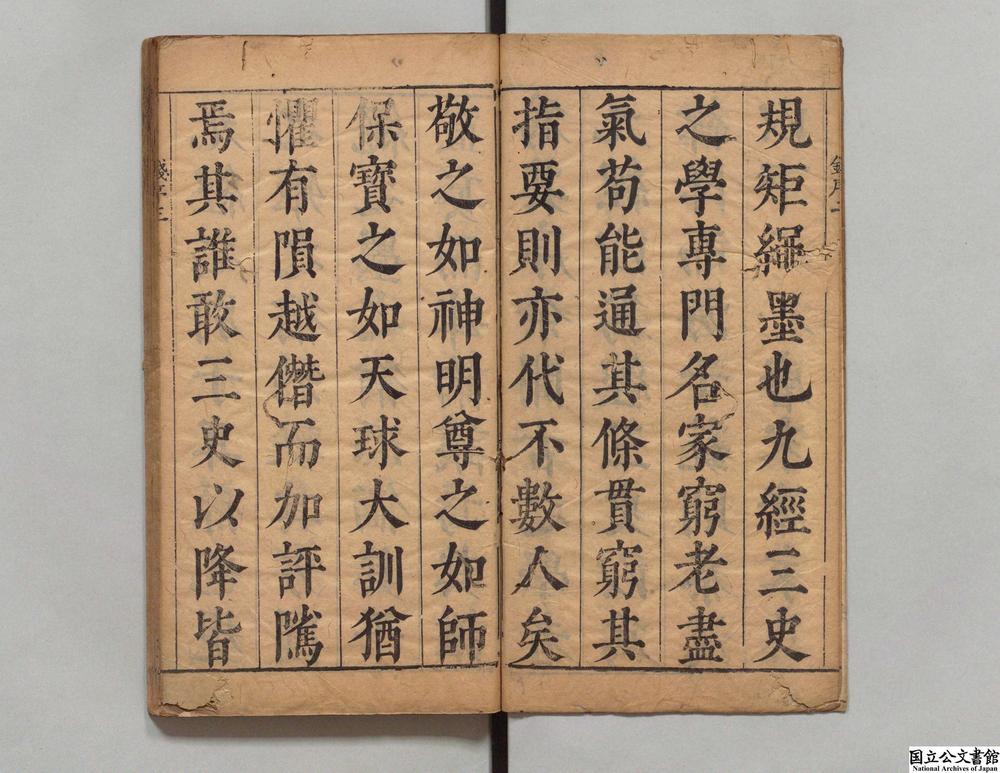 規矩繩墨也九經三史
之學專門名家窮老盡
氣苟能通其條貫窮其
指要則亦代不數人矣
敬之如神明尊之如師
保寶之如天球大訓猶
懼有隕越僭而加評隲
焉其誰敢三史以降皆
錢序三
国立公文書館
National Archives of Japan